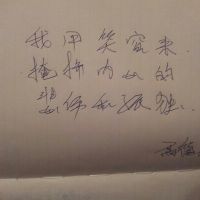 我用笑容来
掩护内心的
悲伤和孤独.